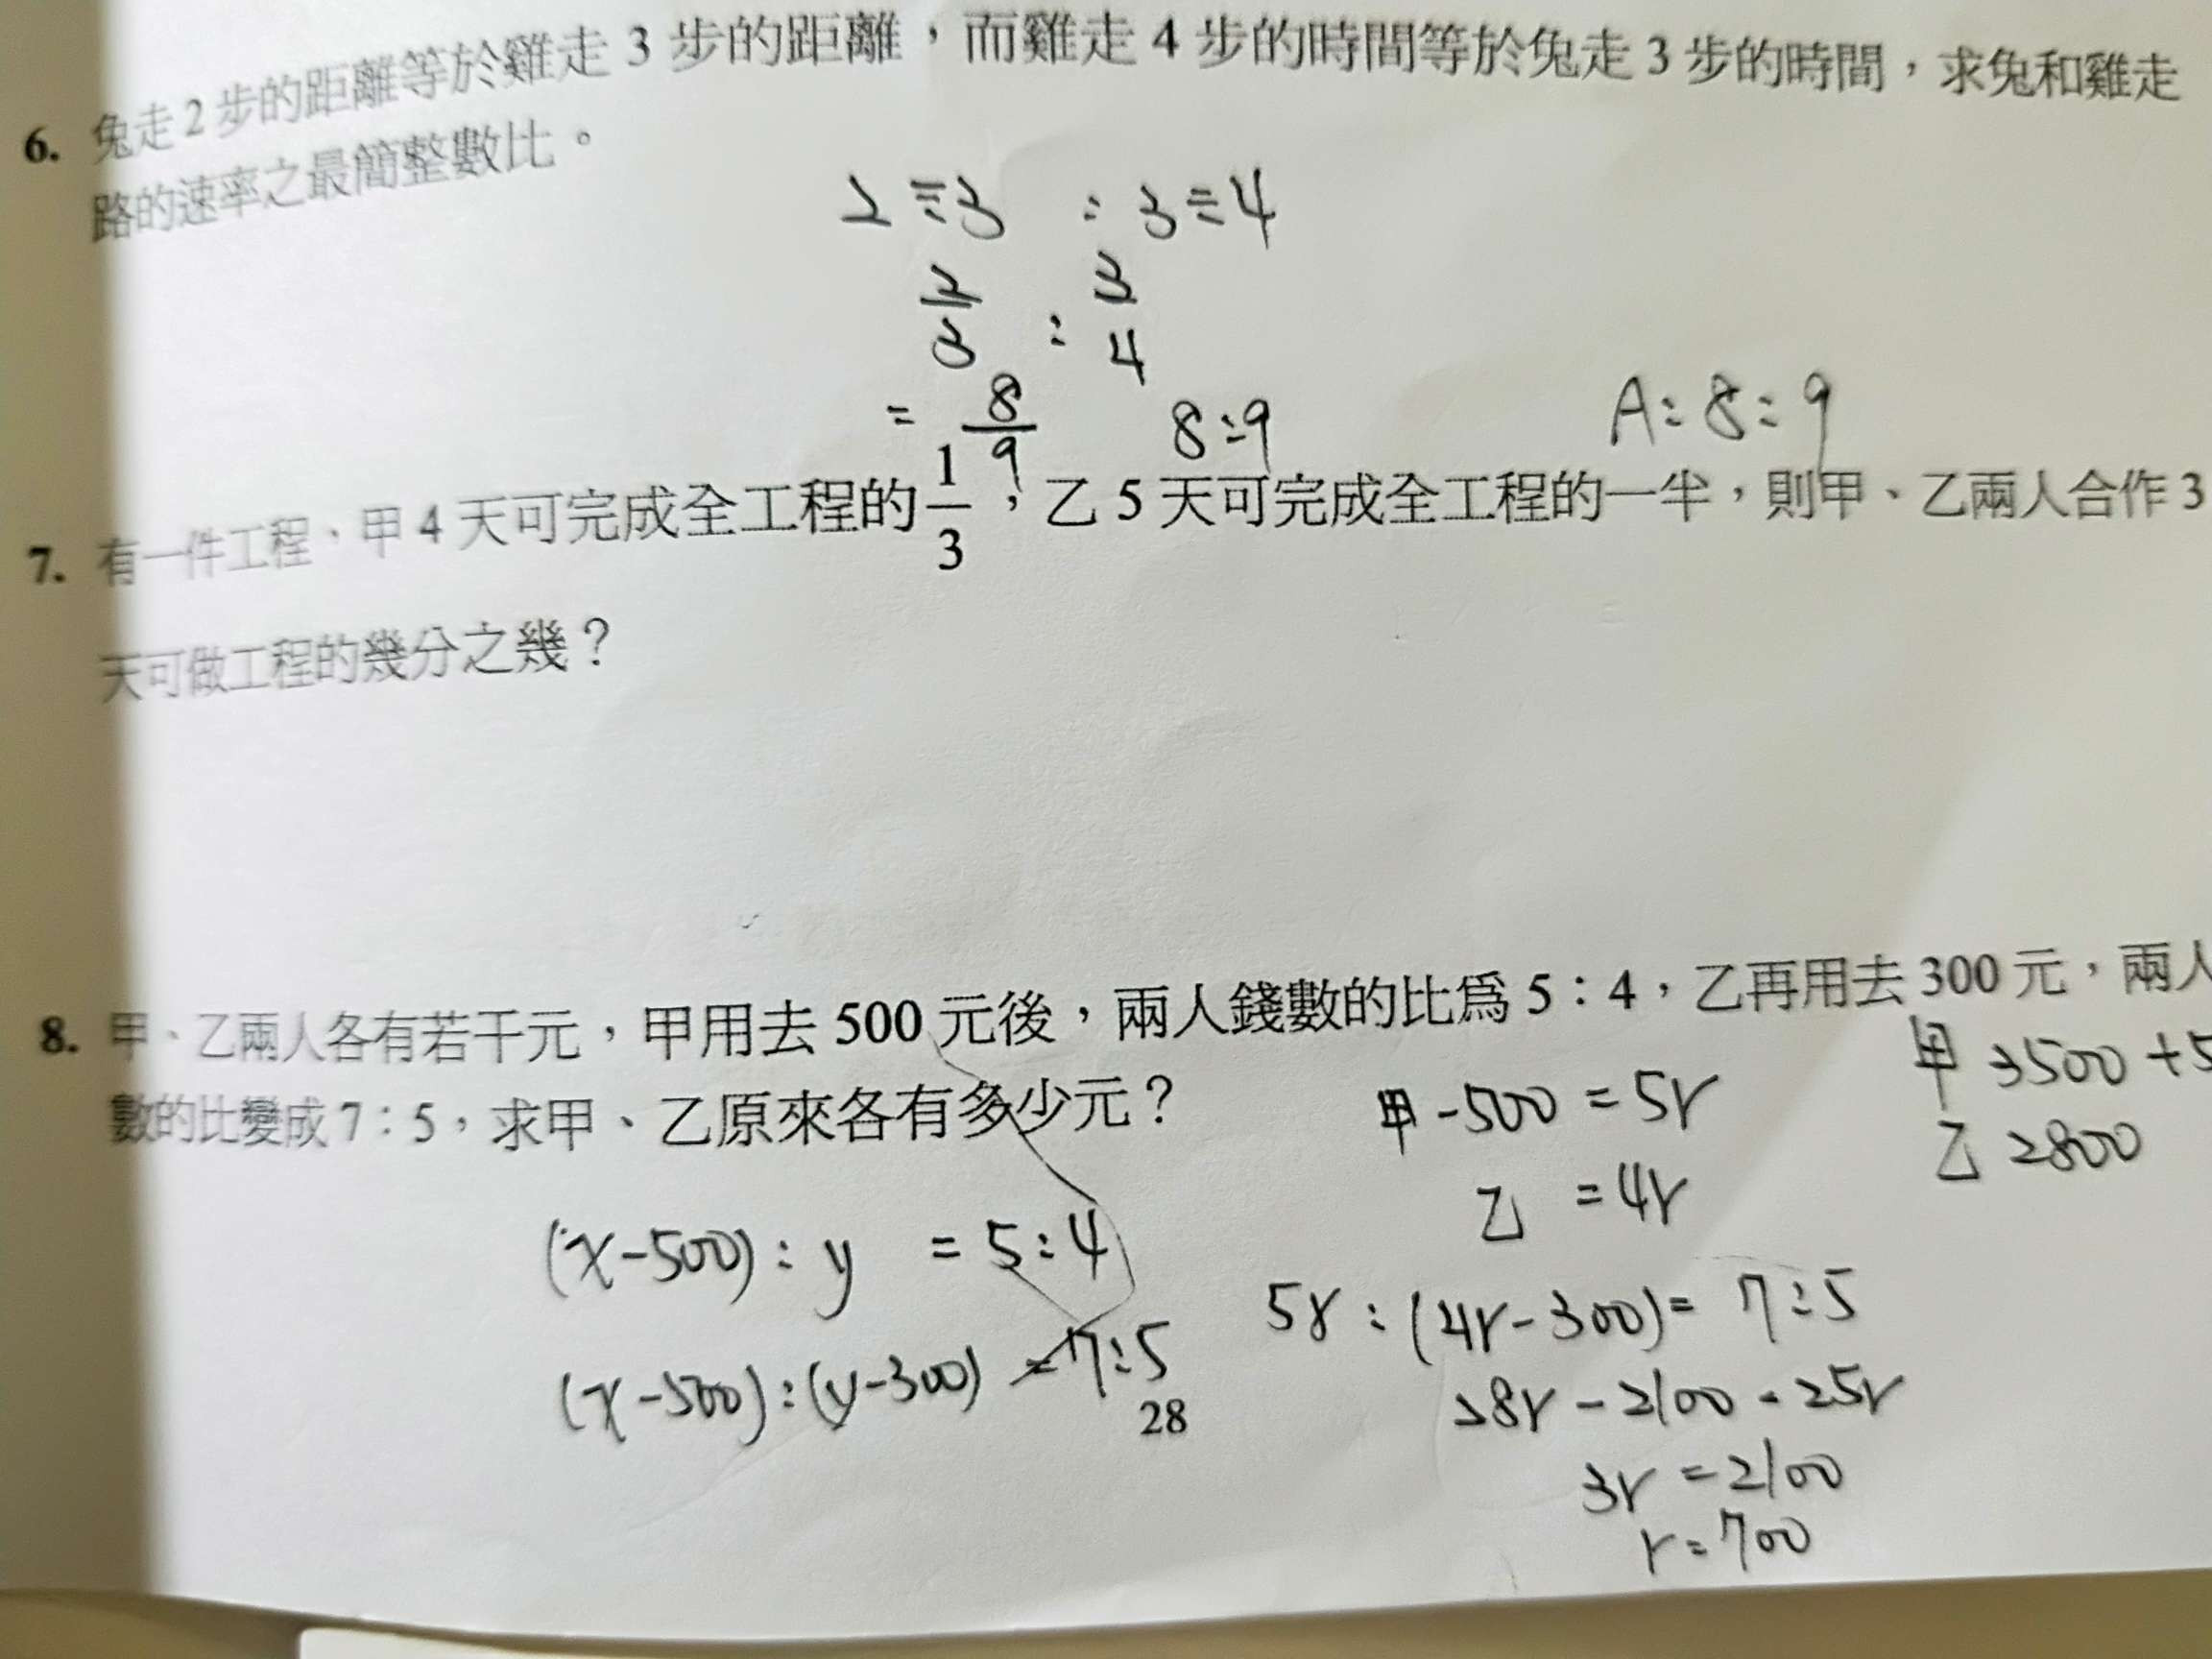 6. 兔走 2 步的距離等於雞走 3 步的距離，而雞走 4 步的時間等於兔走 3 步的時間，求兔和雞走
路的速率之最簡整數比。
2÷3 : 3÷4
2/3 : 3/4
= 8/9 8:9
A: 8:9
7. 有一件工程、甲 4 天可完成全工程的1/3，乙 5 天可完成全工程的一半，則甲、乙兩人合作 3
天可做工程的幾分之幾？
8. 甲、乙兩人各有若干元，甲用去 500 元後，兩人錢數的比為 5：4，乙再用去 300 元，兩人
數的比變成 7：5，求甲、乙原來各有多少元？
(x-500) : y = 5:4
(x-500):(y-300) = 7:5
甲-500 = 5r
乙 = 4r
5r : (4r-300) = 7:5
28r - 2100 = 25r
3r = 2100
r = 700
甲 3500 + 5
乙 2800
28